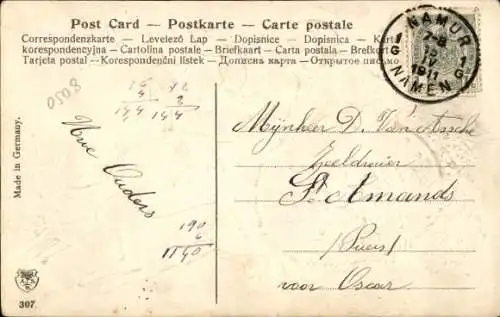 Post Card — Postkarte — Carte postale
Correspondenzkarte — Levelező Lap — Dopisnice — Dopisnica — Karta
korespondencyjna — Cartolina postale — Briefkaart — Carta postala — Brefkort
Tarjeta postal — Korespondenční lístek — Дописна карта — Открытое письмо
NAMUR
1 7-8 1
G 12 G
IV
1911
NAMEN
0508
4
144 144
Uwe Ouders
190
6
1140
Mijnheer D. Van Assche
Zeeldraaier
St Amands
(Puers)
voor Oscar
Made in Germany.
307